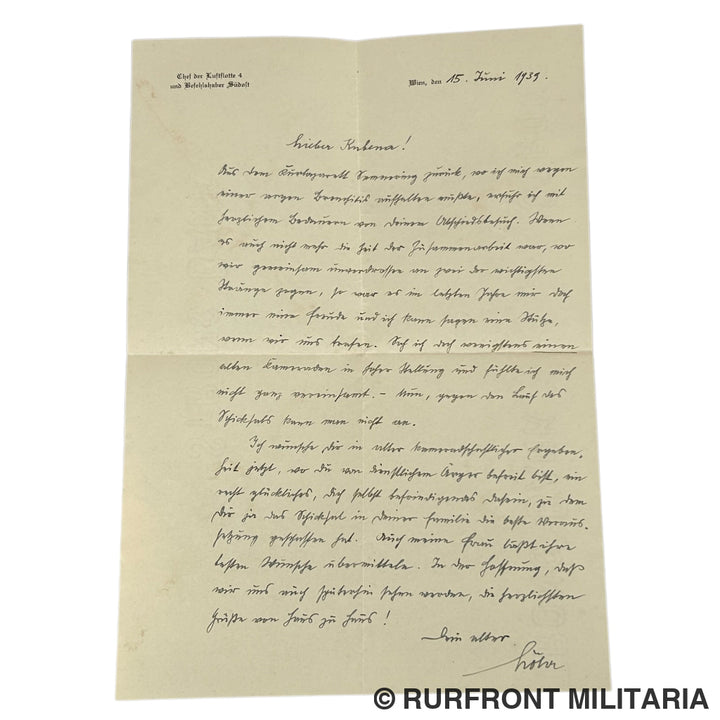 Chef der Luftflotte 4
und Befehlshaber Südost
Wien, den 15. Juni 1939.
Lieber Kubena!
Aus dem Kurlazarett Semmering zurück, wo ich mich wegen
einer argen Bronchitis aufhalten mußte, erfuhr ich mit
herzlichem Bedauern von deinem Abschiedsbesuch. Wenn
es auch nicht mehr die Zeit der Zusammenarbeit war, wo
wir gemeinsam unverdrossen an zwei der wichtigsten
Stränge zogen, so war es im letzten Jahre mir doch
immer eine Freude und ich kann sagen eine Stütze,
wenn wir uns trafen. Sah ich doch wenigstens einen
alten Kameraden in hoher Stellung und fühlte ich mich
nicht ganz vereinsamt. - Nun, gegen den Lauf des
Schicksals kann man nicht an.
Ich wünsche Dir in alter kameradschaftlicher Ergeben-
heit jetzt, wo du von dienstlichem Ärger befreit bist, ein
recht glückliches, dich selbst befriedigendes Dasein, zu dem
Dir ja das Schicksal in deiner Familie die beste Voraus-
setzung geschaffen hat. Auch meine Frau läßt ihre
besten Wünsche übermitteln. In der Hoffnung, daß
wir uns auch späterhin sehen werden, die herzlichsten
Grüße von Haus zu Haus!
Dein alter
Löhr
© RURFRONT MILITARIA